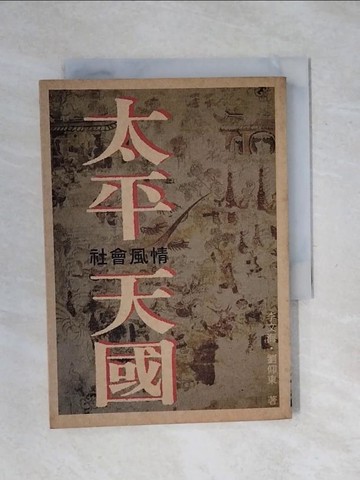 太平天國
社會風情
李文海 劉仰東 著